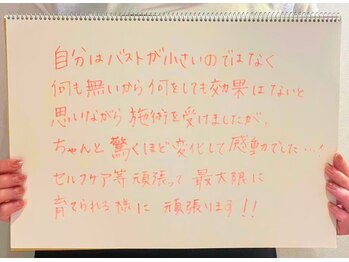 自分はバストが小さいのではなく
何も無いから何をしても効果はないと
思いながら施術を受けましたが、
ちゃんと驚くほど変化して感動でした…!
セルフケア等頑張って最大限に
育てられる様に頑張ります!!